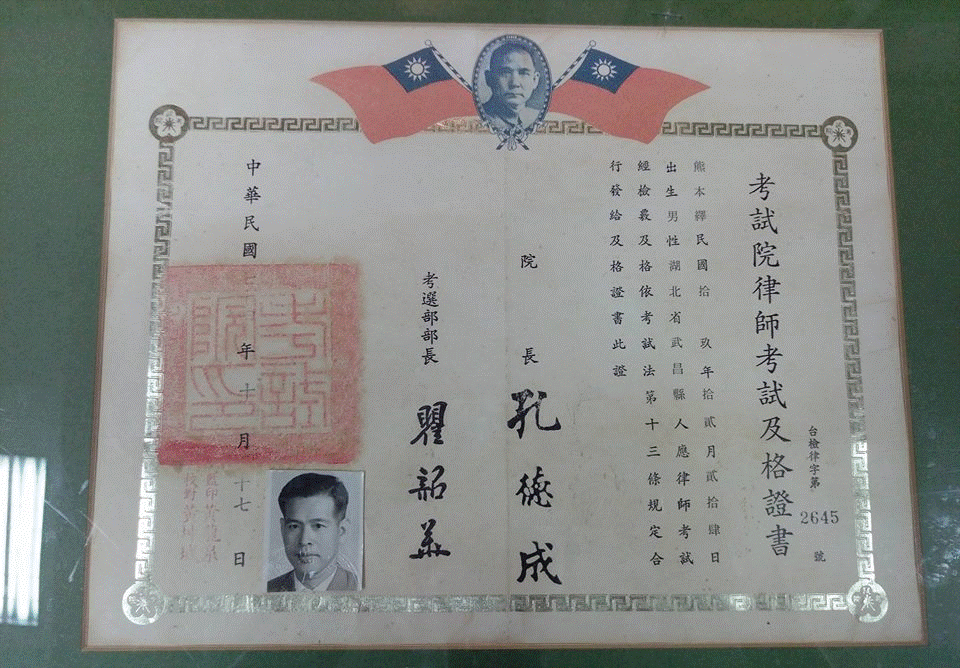 考試院律師考試及格證書
台檢律字第2645號
熊本繹民國拾玖年拾貳月貳拾肆日
出生男性湖北省武昌縣人應律師考試
經檢覈及格依考試法第十三條規定合
行發給及格證書此證
院長孔德成
考選部部長瞿韶華
中華民國七年十月十七日